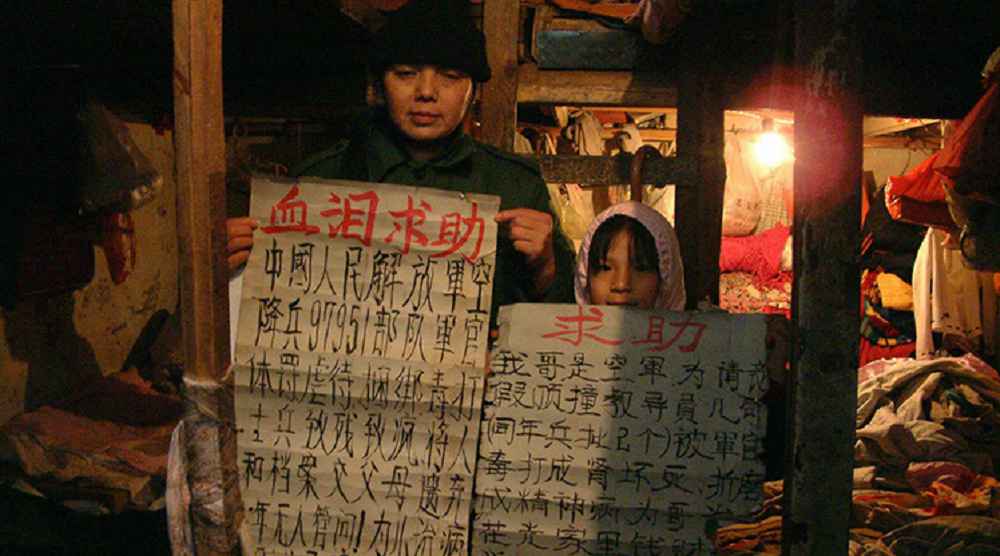 血泪求助
中國人民解放軍空
降兵97951部队軍官
体罚虐待捆绑毒打
士兵致残致疯,将人
和档案交父母遗弃
年无人管问!力从治病
求助
我哥是空軍为请
假顶撞教导員几句
(同年兵扯2个)被軍官
毒打成肾坏死,折磨
成精神病为哥
花光家里钱